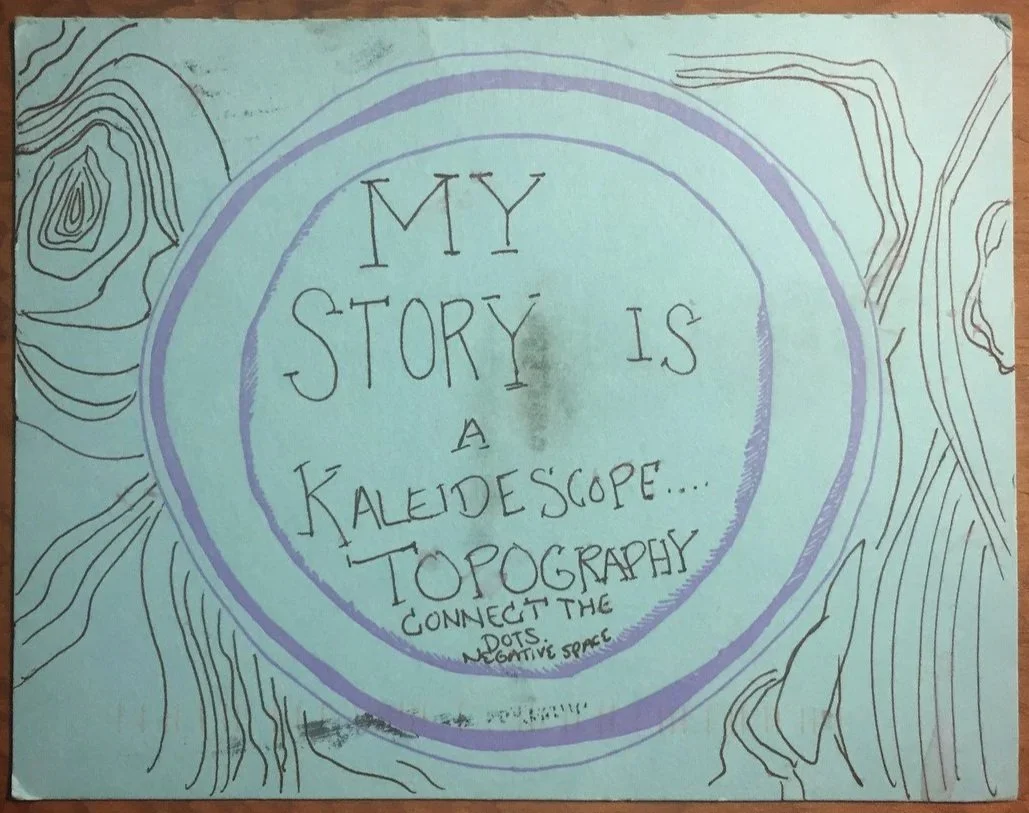 MY
STORY IS
A
KALEIDESCOPE....
TOPOGRAPHY
CONNECT THE
DOTS.
NEGATIVE SPACE